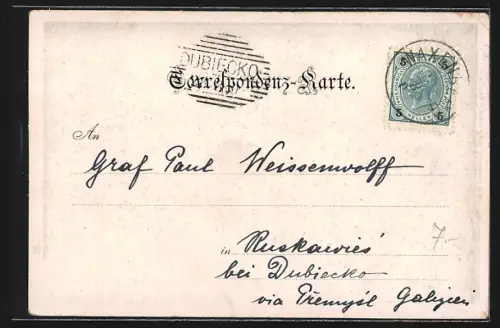 DUBIECKO
Correspondenz-Karte.
5 5
5 5
An
Graf Paul Weissenwolff
7.-
in Ruskawieś
bei Dubiecko
via Přemyśl Galizien